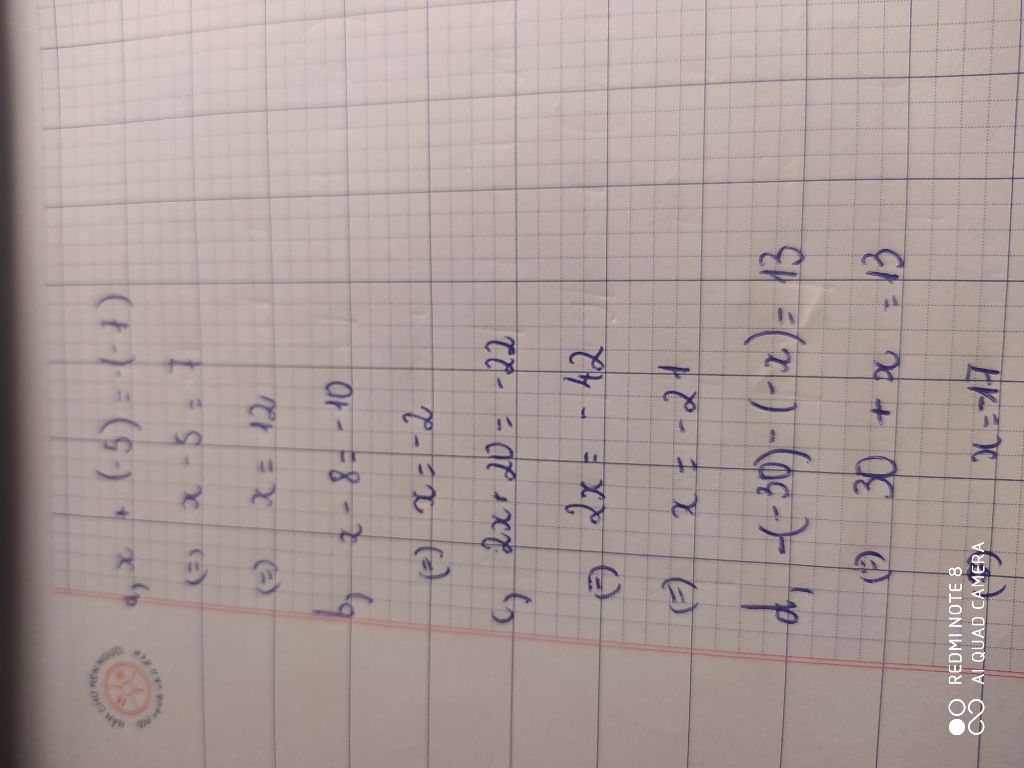 a, x + (-5) = -(-7)
(=) x - 5 = 7
(=) x = 12
b, x - 8 = -10
(=) x = -2
c, 2x + 20 = -22
(=) 2x = -42
(=) x = -21
d, -(-30) - (-x) = 13
(=) 30 + x = 13
x = -17
REDMI NOTE 8
AI QUAD CAMERA